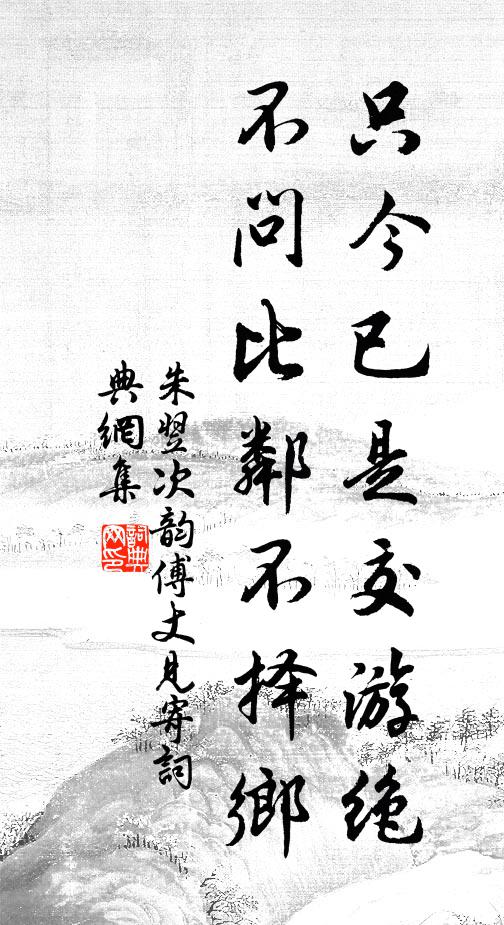 只今已是交游绝
不问比鄰不择鄉
朱翌次韵傅丈見寄詞
典網集
詞典网印